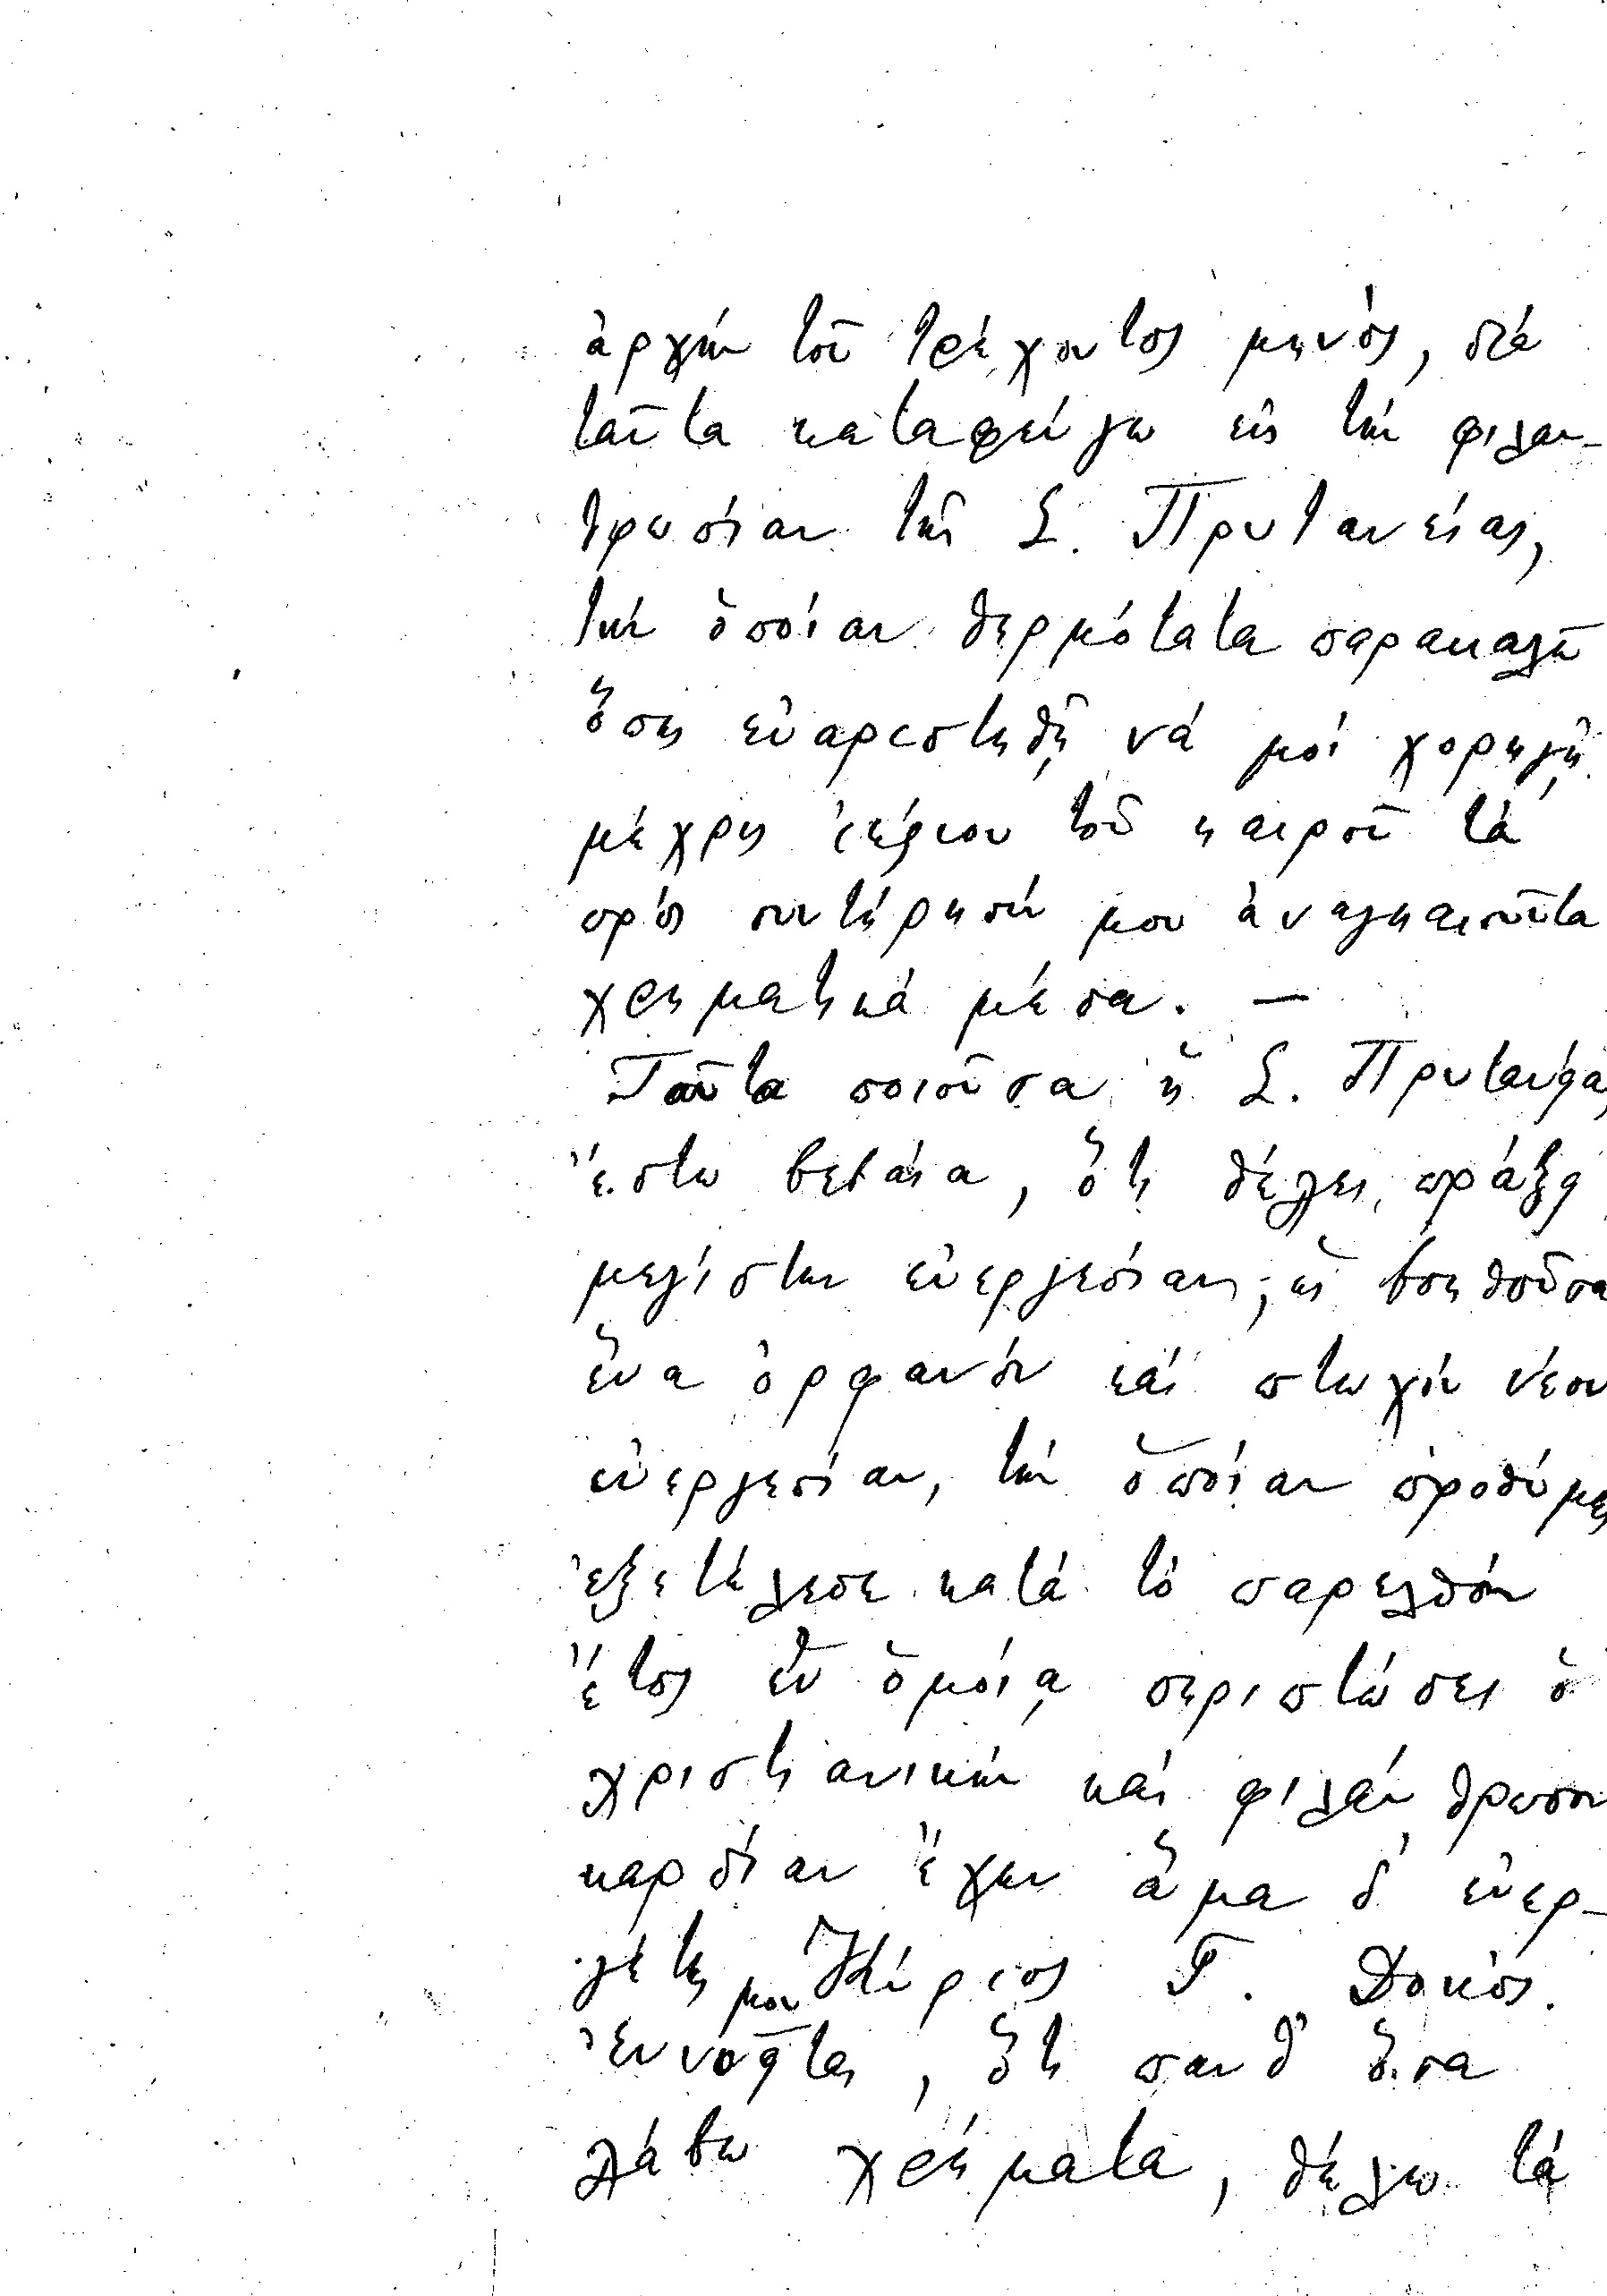 ἀρχήν τοῦ τρέχοντος μηνός, διά
ταῦτα καταφεύγω εἰς τήν φιλαν-
τρωπίαν τῆς Σ. Πρυτανείας,
τήν ὁποίαν θερμότατα παρακαλῶ
ὅπως εὐαρεστηθῇ νά μοί χορηγῇ
μέχρις ἐτέρου τοῦ καιροῦ τά
πρός συντήρησίν μου ἀναγκαιοῦντα
χρηματικά μέσα. —
Ταῦτα ποιοῦσα ἡ Σ. Πρυτανεία,
ἔστω βεβαία, ὅτι θέλει πράξει
μεγίστην εὐεργεσίαν, ὡς βοηθοῦσα
ἕνα ὀρφανόν καί πτωχόν νέον
εὐεργεσίαν, τήν ὁποίαν προθύμως
ἐξετέλεσε κατά τό παρελθόν
ἔτος ἐν ὁμοίᾳ περιπτώσει ὁ
χριστιανικήν καί φιλάνθρωπον
καρδίαν ἔχων ἅμα δ' εὐερ-
γέτης μου Κύριος Γ. Δοκός.
Ἐννοεῖται, ὅτι πανθ' ὅσα
λάβω χρήματα, θέλω τά